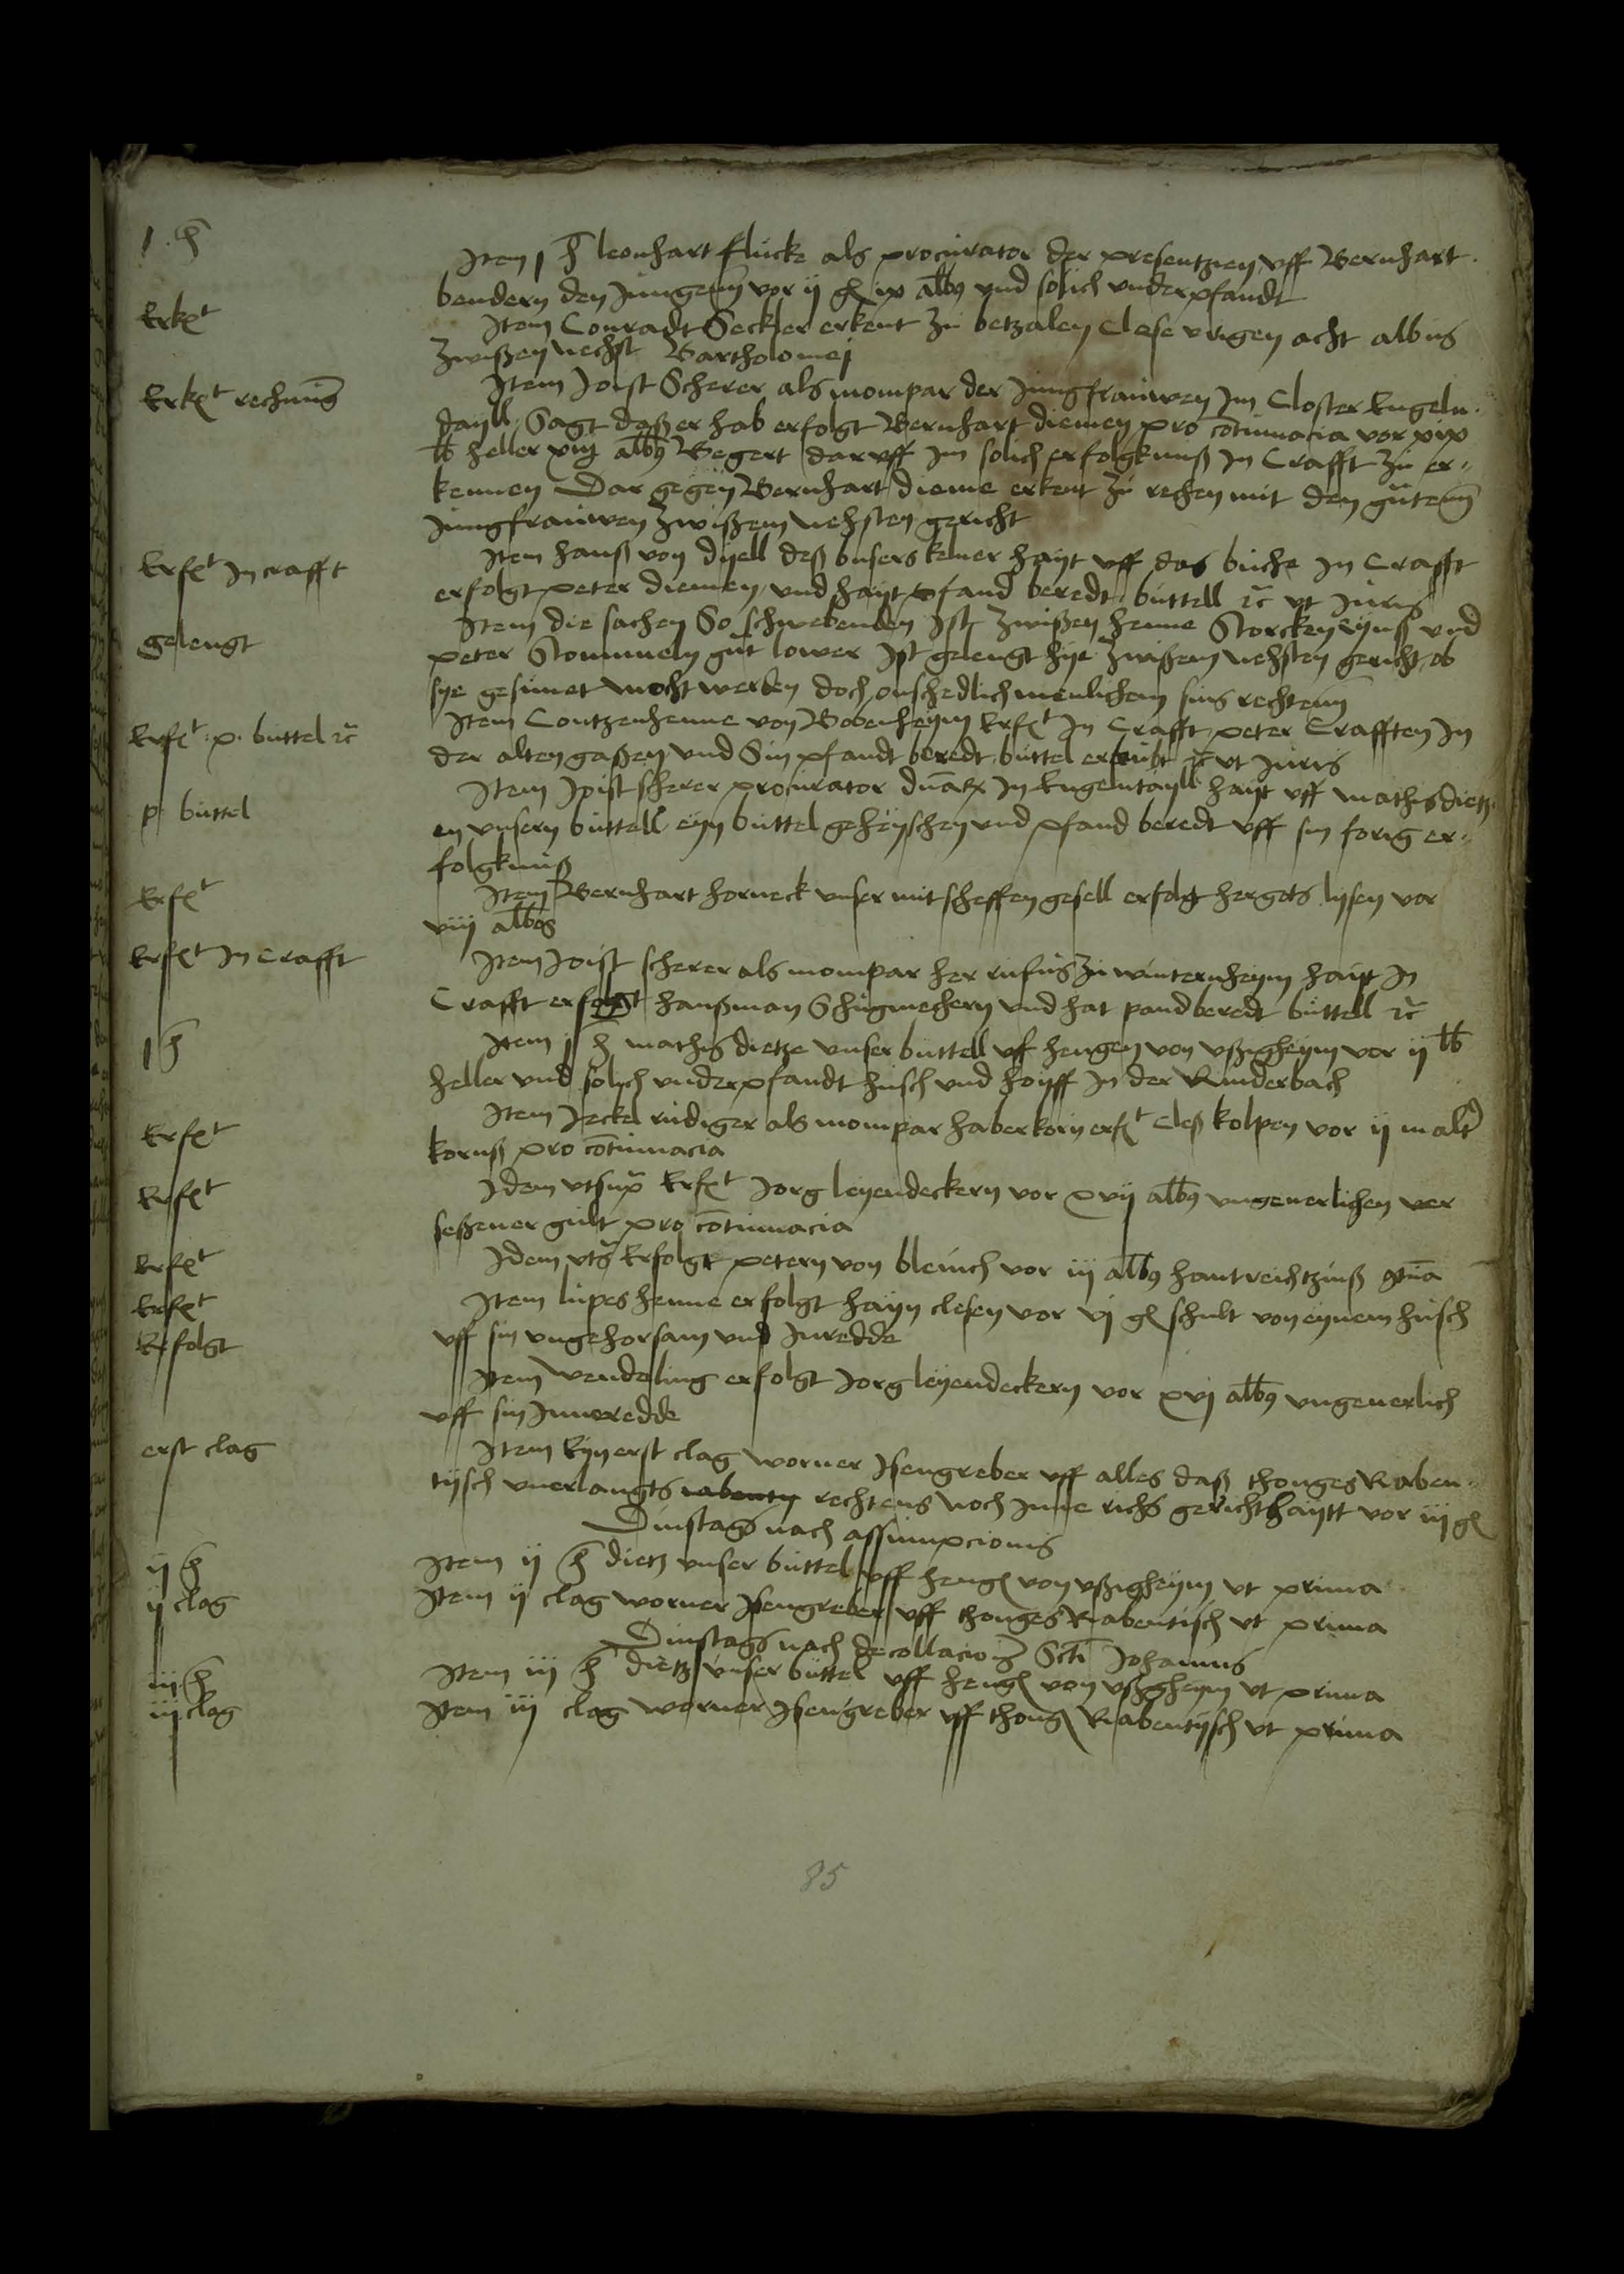 1 h
Item 1 h leonhart flucke als procurator der presentzien uff Bernhart
bendern den Jungen vor ij gl ix albus und solich underpfandt
Erkt
Item Conradt Seckler erkent zu betzalen Clese urigen acht albus
zwißen nechst Bartholomej
Erkt rechnung
Item Joist Scherer als mompar der Jungfrauwen Im Closter Engeln
dayll Sagt daß er hab erfolgt Bernhart diemen pro cotumacia vor xix
lb heller xiij albus Begert daruff im solich erfolgkniß In Crafft zu er„
kennen Dar gegen Bernhart dieme erkent zu rechen mit den guten
Jungfrauwen zwißem nehsten gericht
Erft In crafft
Item hanß von dyell deß busers kelner hayt uff das buche In Crafft
erfolgt peter diemen und hayt pfand beredt buttell etc ut Juris
gelengt
Item die sachen So schwebenden Ist zwißen henne Storcken und
peter Stommeln gut lower Ist gelengt hye zwißem nehsten gericht ob
sye gesunet mocht werden doch onschedlich menlichem sins rechten
Erft p buttel etc
Item Contzenhenne von Bobenheym Erft In Crafft peter Crafften In
der alten gaßen und Sin pfandt beredt buttel erleubt etc ut Juris
p buttel
Item Joist scherer procurator duarx In Engelntayll hayt uff mathis dietz
en unsern buttell eyn buttel geheyschen und pfand beredt uff sin forig er„
folgkniß
Erft
Item Bernhart horneck unser mit scheffen gesell erfolgt hergots lysen vor
viij albus
Erft In Crafft
Item Joist scherer als mompar her rufus zu winternheym hayt In
Crafft erfolgt hanßman Schugmechern und hat pand beredt buttell etc
1 h
Item 1 h mathis dietze unser buttell uf hengen von ußigheym vor ij lb
heller und solich underpfandt husch und hoyff In der Runderbach
Erft
Item Jeckel rudiger als mompar haberkorn erft Cleß kolpen vor ij malt
kornß pro cotumacia
Erft
Idem utsup Erft Jorg leyendeckern vor xvij albus ungeuerlichen ver
seßener gult pro cotumacia
Erft
Idem uts Erfolgt petern von blenich vor iij albus hantreichtzinß
Erft
Item lupes henne erfolgt hayn clesen vor vj gl schult von eynem husch
Erfolgt
uff sin ungehorsam und Inredde
Item wendeling erfolgt Jorg leyendeckern vor xvj albus ungeuerlich
uff sin Inneredde
erst clag
Item Eyn erst clag worner Isengreber uff alles daß thonges Raben„
tysch unerlangts rabenty rechtens noch Inne richs gericht haytt vor iij gl
Dinstags nach assumpcionis
ij h
Item ij h dietz unser buttel uff heng von ußigheym ut prima
ij clag
Item ij clag worner Isengreber uff thonges Rabentisch ut prima
Dinstags nach decollacionis Scti Johannis
iij h
Item iij h dietz unser buttel uff heng von ußigheym ut prima
iij clag
Item iij clag worner Isengreber uff thong Rabentysch ut prima
85